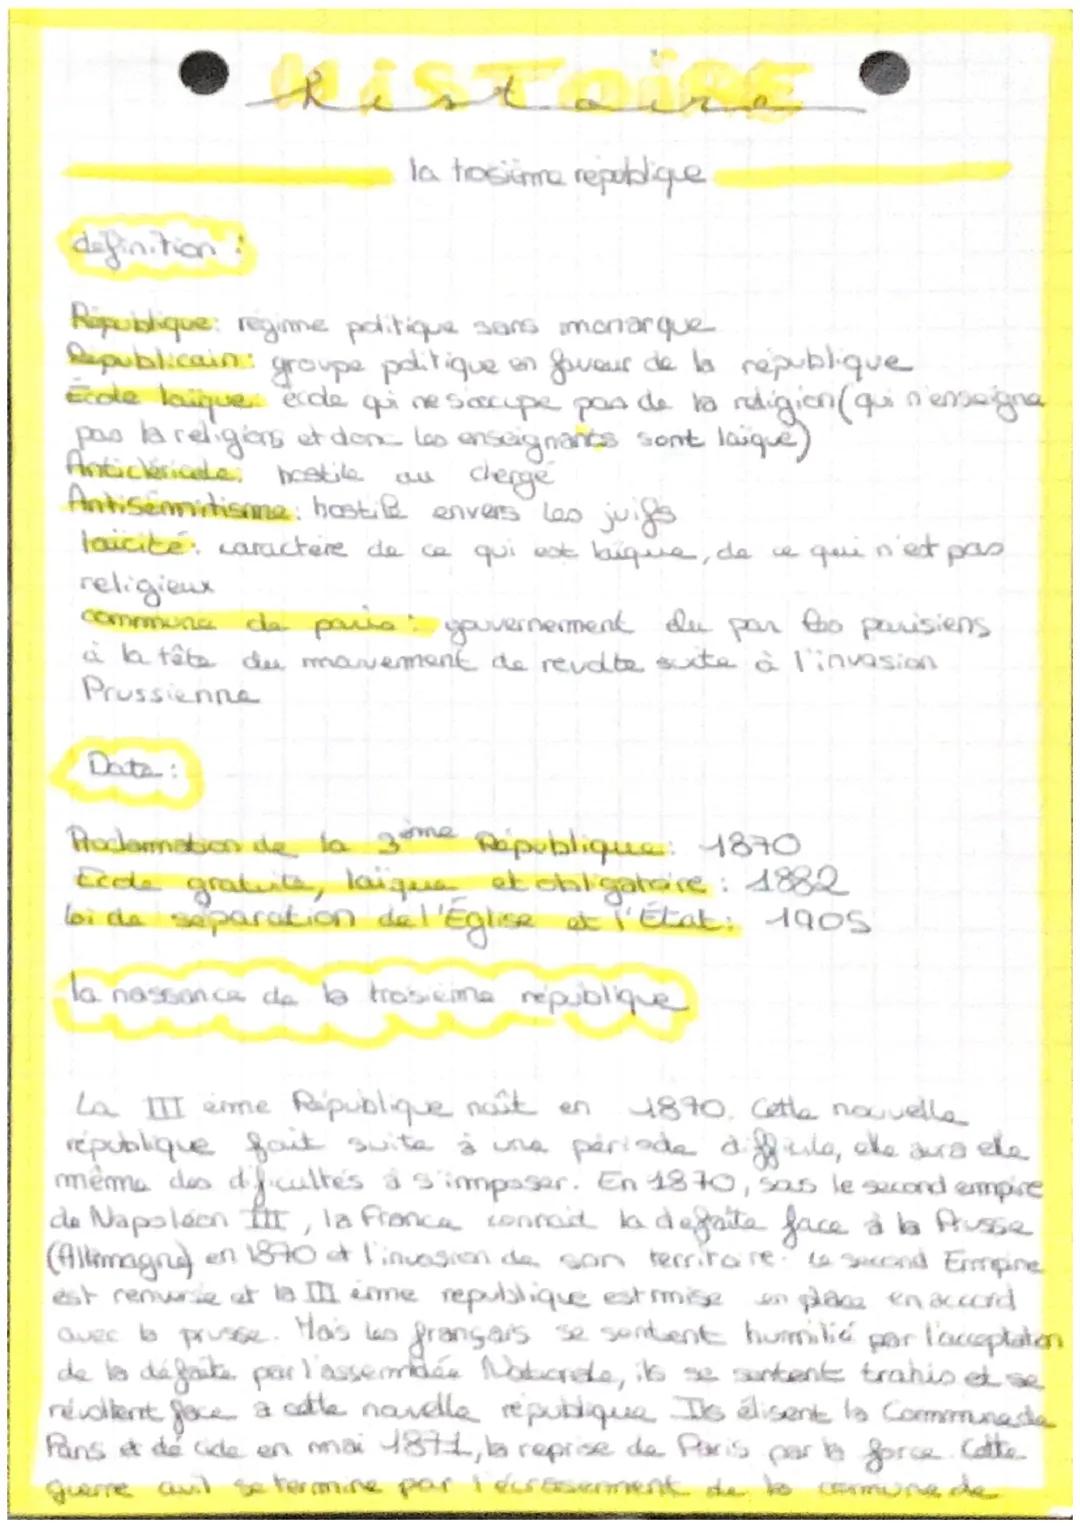 HISTOIRE
histoire
la troisième république
définition :
République: régime politique sans monarque
Républicain: groupe politique en faveur de la république
École laïque: école qui ne s'occupe pas de la religion (qui n'enseigne
pas la religions et donc les enseignants sont laïque)
Anticléricale: hostile au clergé
Antisémitisme: hostile envers les juifs
laïcité: caractère de ce qui est laïque, de ce qui n'est pas
religieux
commune de paris: gouvernement élu par les parisiens
à la tête du mouvement de révolte suite à l'invasion
Prussienne
Date :
Proclamation de la 3ème République: 1870
École gratuite, laïque et obligatoire : 1882
loi de séparation de l'Église et l'État: 1905
la naissance de la troisième république
La III ème République naît en 1870. Cette nouvelle
république fait suite à une période difficile, elle aura elle
même des dificultés à s'imposer. En 1870, sous le second empire
de Napoléon III, la France connait la défaite face à la Prusse
(Allemagne) en 1870 et l'invasion de son territoire. Le second Empire
est renversé et la III ème republique est mise en place en accord
avec la prusse. Mais les français se sentent humilié par l'acceptation
de la défaite par l'assemblée Nationale, ils se sentent trahis et se
révoltent face a cette nouvelle république Ils élisent la Commune de
Paris et dé cide en mai 1871, la reprise de Paris par la force. Cette
guerre civil se termine par l'écrasement de la commune de